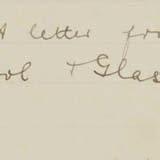 A letter fro
ol + Glas